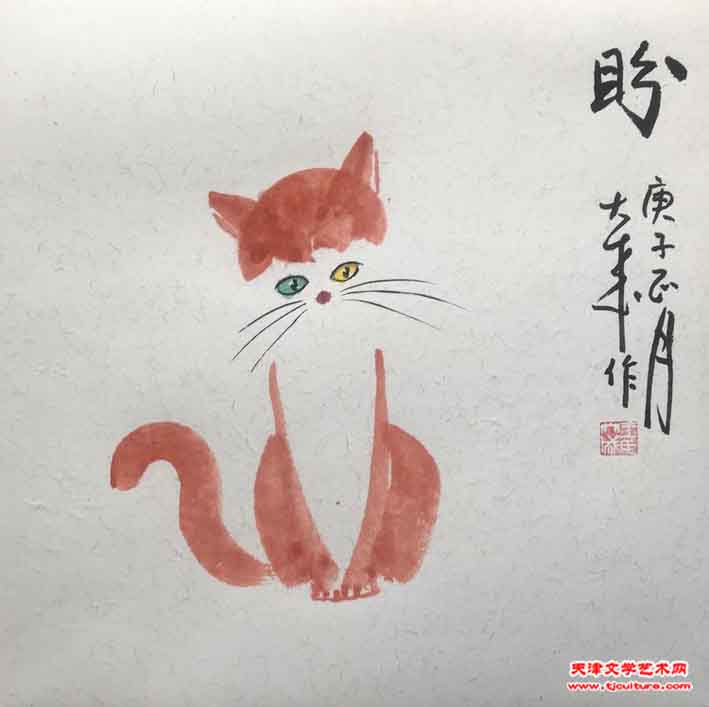 盼
庚子正月
大年作
天津文学艺术网
www.tjculture.com